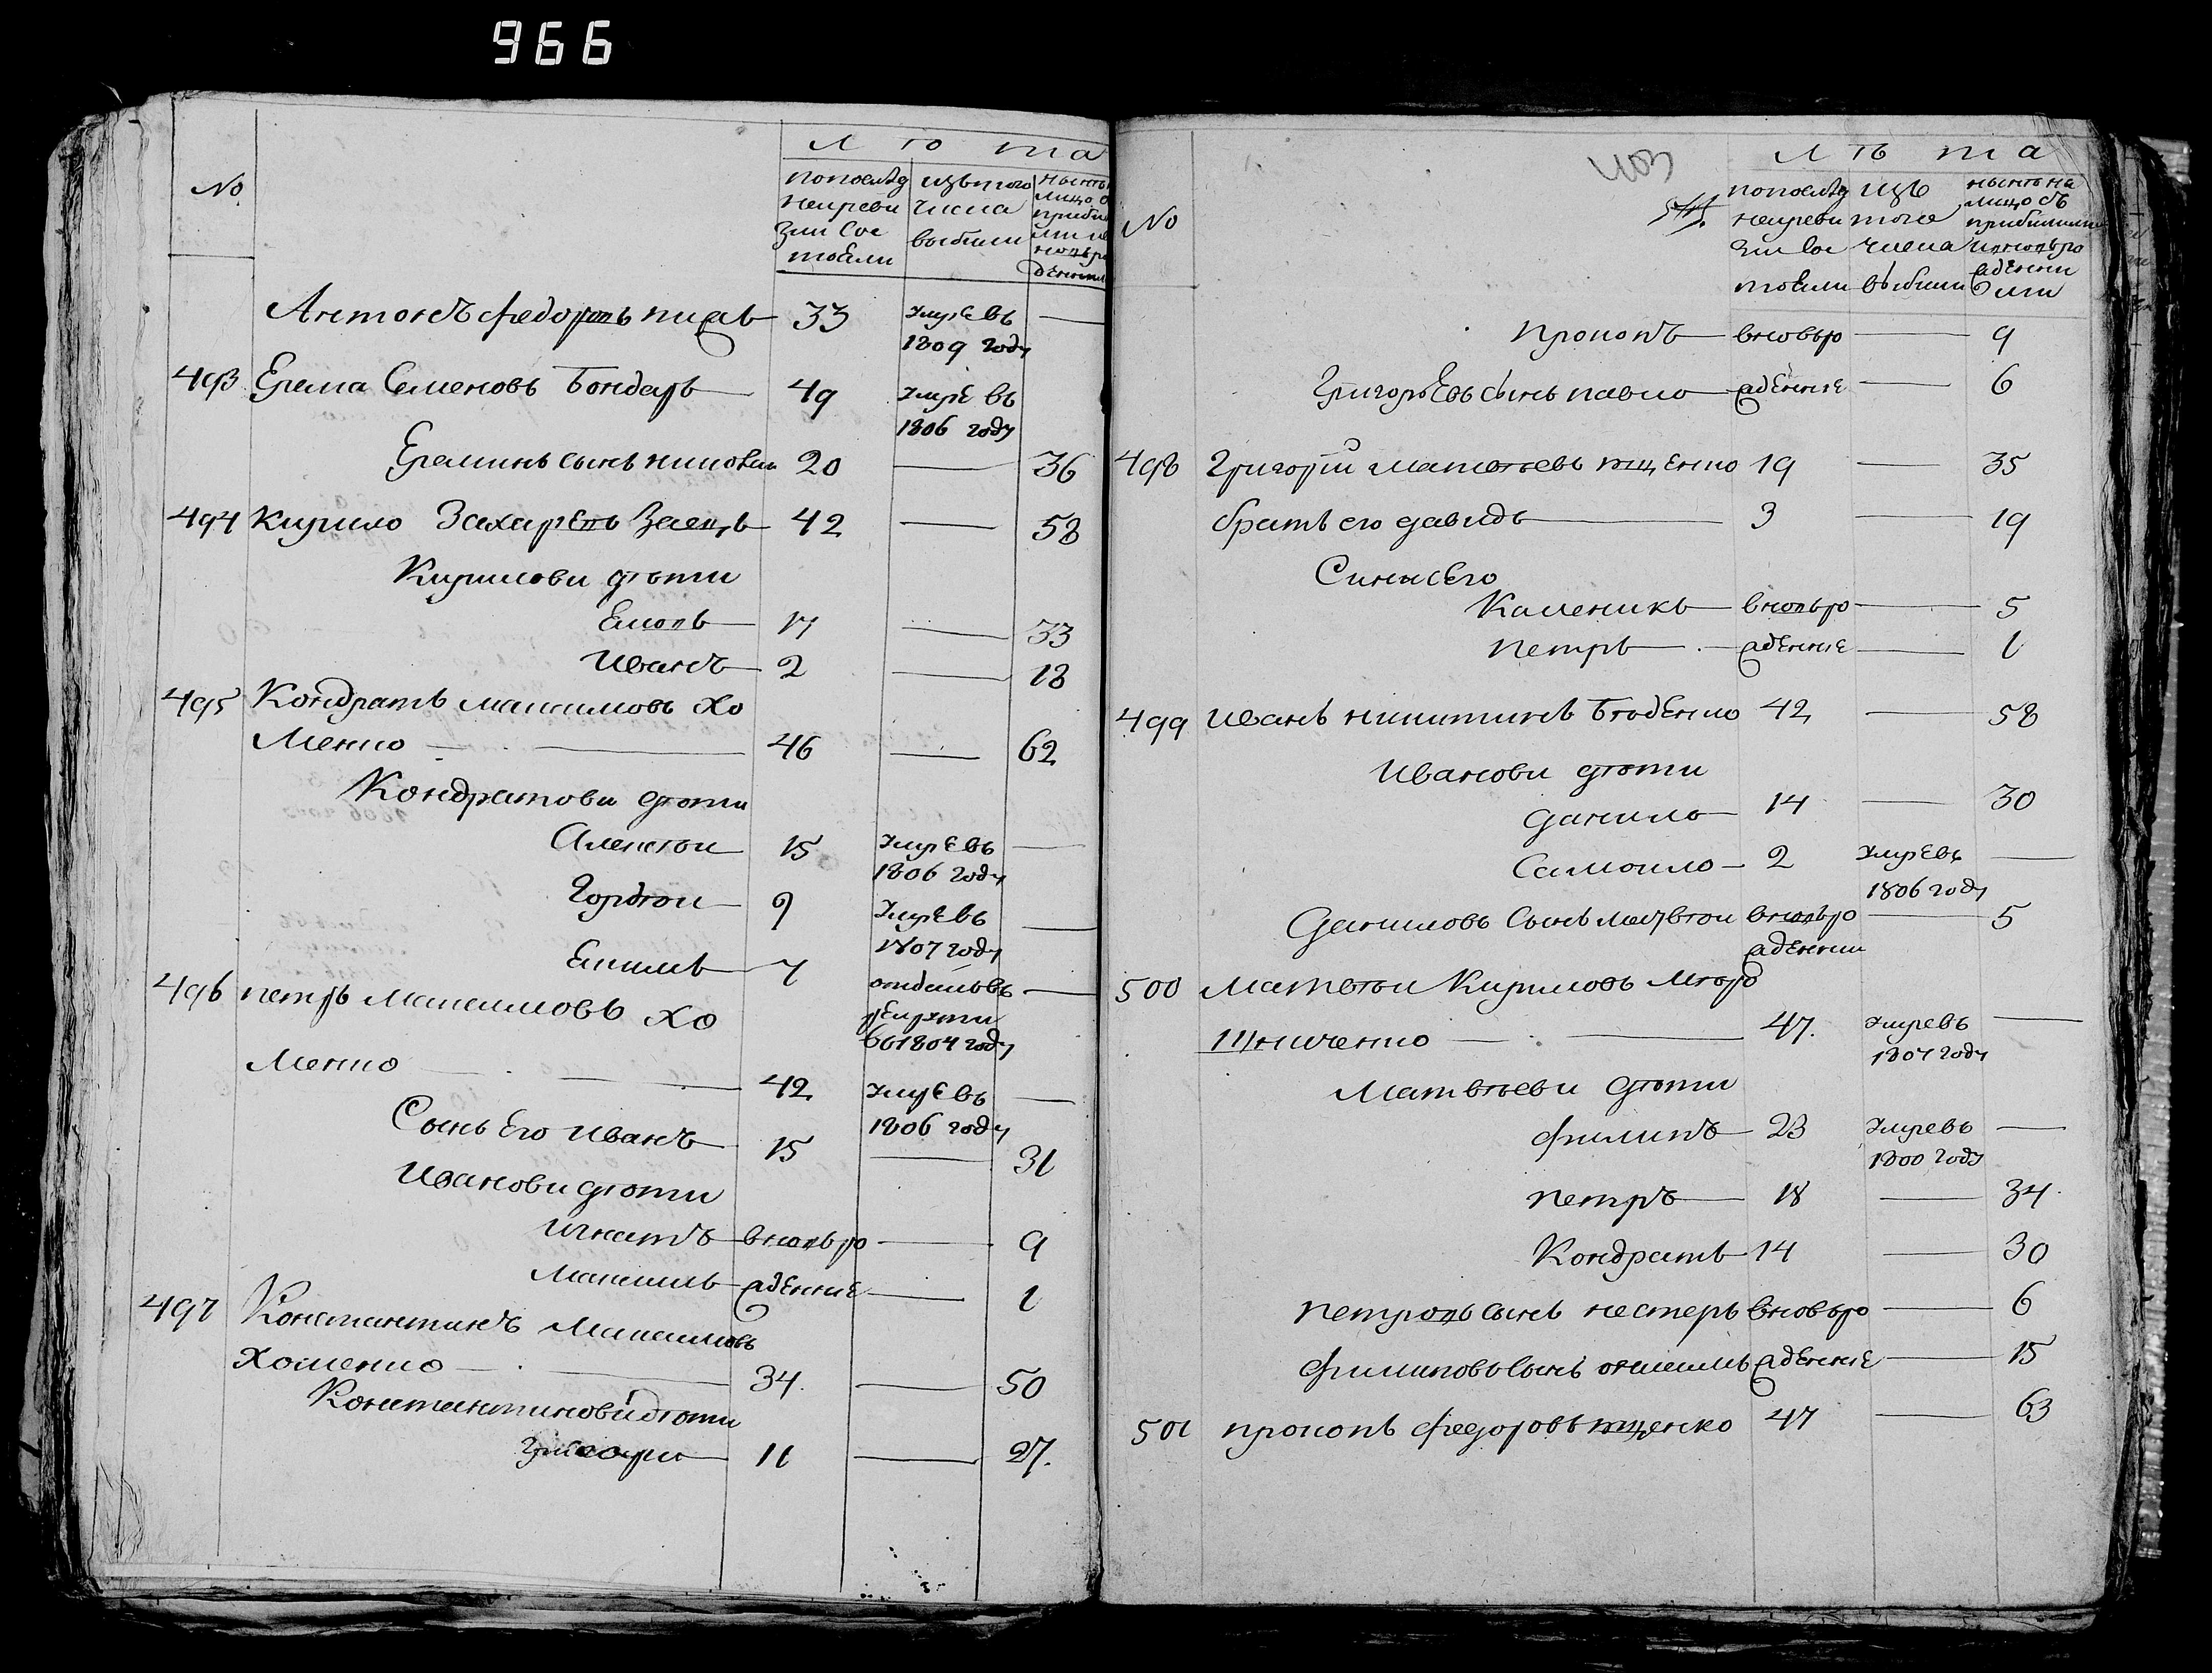 966
№
Лѣта
попослѣд
ней реви
зіи сос
тояли
изътого
числа
выбыли
Антонъ Федоровъ 33 умре въ —
1809 году
493 Ерема Семеновъ Бондарь 49 умре въ
1806 году
Ереминъ сынъ 20 — 36
494 Кирило Захаревъ Заецъ 42 — 58
Кирилови дѣти
17 — 33
Иванъ 2 — 18
495 Кондратъ Максимовъ Хо
менко — 46 — 62
Кондратови дѣти
Алексѣи 15 умре въ —
1806 году
Гордѣи 9 умре въ —
1807 году
7 отданъ въ —
рекруты
въ 1804 году
496 петръ Максимовъ Хо
менко — 42 умре въ —
1806 году
Сынъ его Иванъ 15 — 31
Иванови дѣти
Игнатъ вновьро — 9
Максимъ жденніе — 1
497 Константинъ Максимовъ
Хоменко — 34 — 50
Константинови дѣти
Григори 11 — 27.
№
Лѣта
попослѣд
ней реви
зіи сос
тояли
изъ
того
числа
выбыли
нынѣ на
лицо съ
прибылими
иновьро
жденни
ми
Прокопъ вновьро — 9
Григорьевъ сынъ павло жденніе — 6
498 Григорій Матвѣевъ ященко 19 — 35
братъ его давидъ 3 — 19
Сини его
Каленикъ вновьро — 5
петръ жденніе — 1
499 Иванъ никитинъ 42 — 58
Иванови дѣти
Данило 14 — 30
Самоило 2 умре въ —
1806 году
Даниловъ сынъ матвѣи вновьро — 5
жденни
500 Матвѣи Кириловъ Миро
шниченко — 47. умре въ —
1807 году
Матвѣеви дѣти
Филипъ 23 умре въ —
1800 году
петръ 18 — 34.
Кондратъ 14 — 30
петровъ сынъ нестеръ вновьро — 6
Филиповъ сынъ жденніе — 15
501 прокопъ Федоровъ ященко 47 — 63